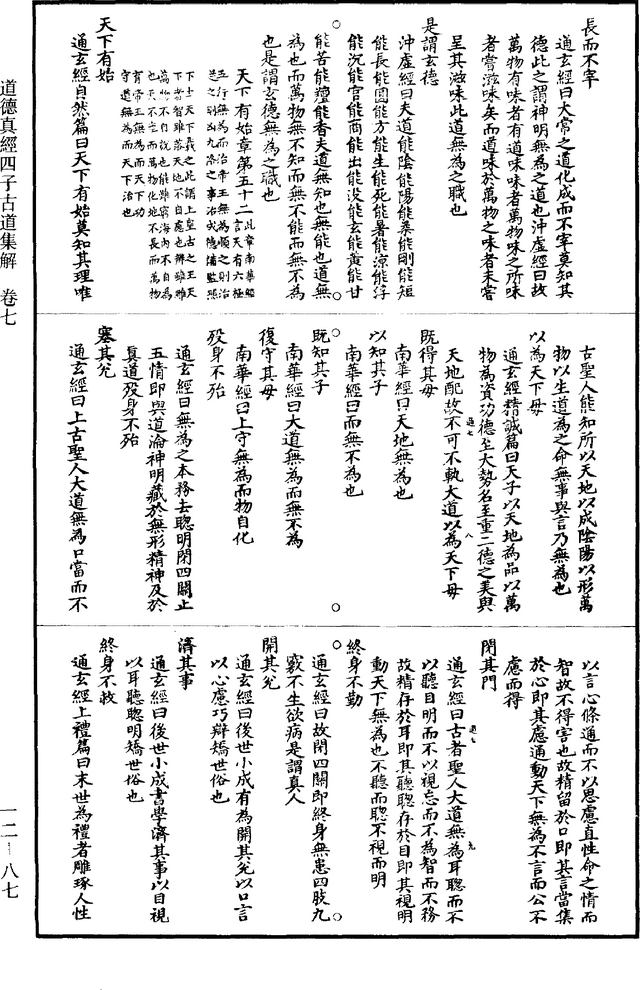 長而不宰
通玄經曰大常之道化成而不宰莫知其
德此之謂神明無為之道也沖虛經曰故
萬物有味者有道味味者萬物味之所味
者嘗滋味矣而道味於萬物之味者未嘗
呈其滋味此道無為之職也
是謂玄德
沖虛經曰夫道能陰能陽能柔能剛能短
能長能圓能方能生能死能暑能涼能浮
能沉能宮能商能出能沒能玄能黃能甘
能苦能羶能香夫道無知也無能也道無
為也而萬物無不知而無不能而無不為
也是謂玄德無為之職也
天下有始章第五十二
此章南華經
言天有六極
五行無為而治帝王無為順之則治
逆之則凶九洛之事治成德備監照
下土天下義之此謂上皇古之王天
下者智雖落天地不自慮也辯雖雕
萬物不自說也能雖窮海內不自為
也天不產而萬物化地不長而萬物
育帝王無為而天下功
守道無為而天下治也
天下有始
通玄經自然篇曰天下有始莫知其理唯
古聖人能知所以天地以成陰陽以形萬
物以生道為之命無事與言乃無為也
以為天下母
通玄經精誠篇曰天子以天地為品以萬
物為資功德至大勢名至重二德之美與
天地配故不可不執大道以為天下母
既得其母
南華經曰天地無為也
以知其子
南華經曰而無不為也
既知其子
南華經曰大道無為而無不為
復守其母
南華經曰上守無為而物自化
歿身不殆
通玄經曰無為之本務去聰明閉四關止
五情即與道淪神明藏於無形精神及於
真道歿身不殆
塞其兌
通玄經曰上古聖人大道無為口當而不
以言心條通而不以思慮直性命之情而
智故不得害也故精留於口即其言當集
於心即其慮通動天下無為不言而公不
慮而得
閉其門
通玄經曰古者聖人大道無為耳聰而不
以聽目明而不以視忘而不為智而不務
故精存於耳即其聽聰存於目即其視明
動天下無為也不聽而聰不視而明
終身不勤
通玄經曰故閉四關即終身無患四肢九
竅不生欲病是謂真人
開其兌
通玄經曰後世小成有為開其兌以口言
以心慮巧辯矯世俗也
濟其事
通玄經曰後世小成書學濟其事以目視
以耳聽聰明矯世俗也
終身不救
通玄經上禮篇曰末世為禮者雕琢人性
道德真經四子古道集解 卷七
一二—八七